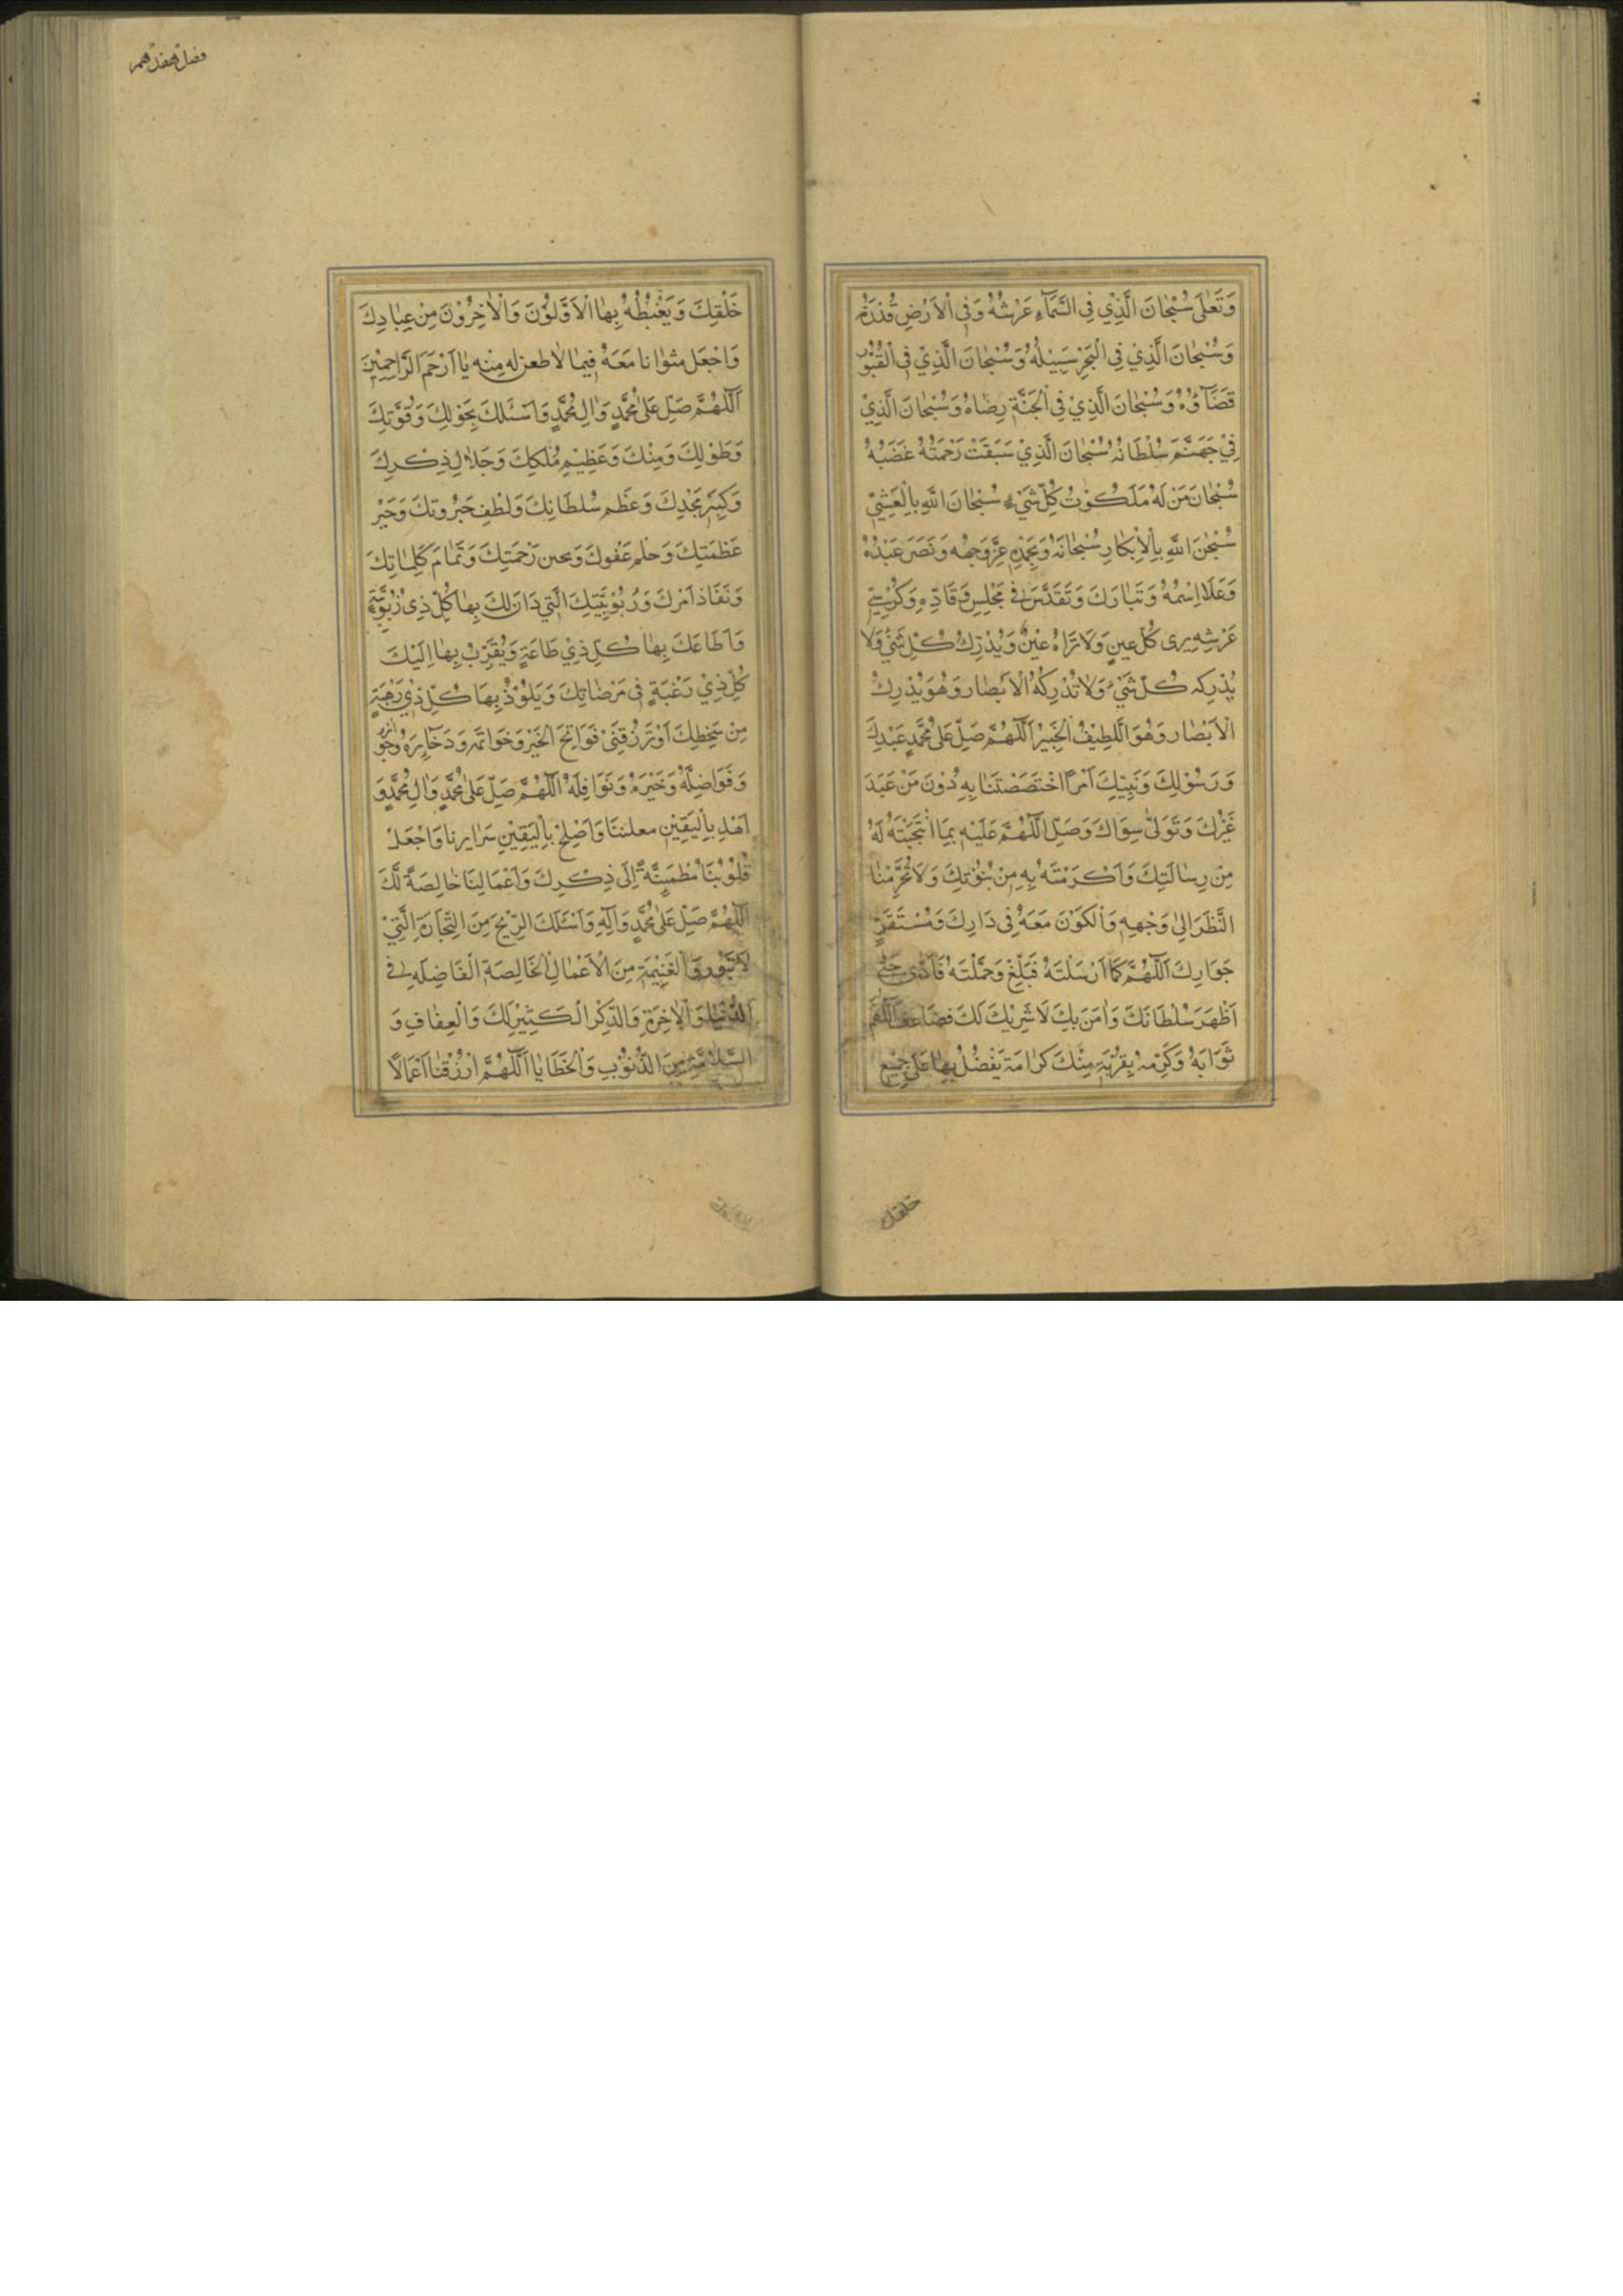 وَتَعَالٰى سُبْحَانَ الَّذِيْ فِي السَّمَآءِ عَرْشُهُ وَفِي الْاَرْضِ قُدْرَتُهُ
وَسُبْحَانَ الَّذِيْ فِي الْبَحْرِ سَبِيْلُهُ وَسُبْحَانَ الَّذِيْ فِي الْقُبُوْرِ
قَضَآؤُهُ وَسُبْحَانَ الَّذِيْ فِي الْجَنَّةِ رِضَاهُ وَسُبْحَانَ الَّذِيْ
فِيْ جَهَنَّمَ سُلْطَانُهُ سُبْحَانَ الَّذِيْ سَبَقَتْ رَحْمَتُهُ غَضَبَهُ
سُبْحَانَ مَنْ لَهُ مَلَكُوْتُ كُلِّ شَيْءٍ سُبْحَانَ اللهِ بِالْعَشِيِّ
سُبْحٰنَ اللهِ بِالْاِبْكَارِ سُبْحَانَهُ وَبِحَمْدِهِ عَزَّ وَجْهُه وَنَصَرَ عَبْدَهُ
وَعَلَا اِسْمُهُ وَتَبَارَكَ وَتَقَدَّسَ فِي مَجْلِسِ وَقَارِهِ وَكُرْسِيِّ
عَرْشِهِ يرى كُلّ عين وَلَا تَرَاهُ عَيْنٌ وَيُدْرِكُ كُلّ شَيْءٍ وَلَا
يُدْرِكه كُلّ شَيْءٍ وَلَا تُدْرِكُهُ الْاَبْصَار وَهُوَ يُدْرِكُ
الْاَبْصَار وَهُوَ اللَّطِيْفُ الْخَبِيْرُ اَللّٰهُمَّ صَلِّ عَلٰى مُحَمَّدٍ عَبْدِكَ
وَرَسُوْلِكَ وَنَبِيِّكَ اَمْرًا اخْتَصَصْتَنَا بِهِ دُوْنَ مَنْ عَبَدَ
غَيْرَكَ وَتَوَلّٰى سِوَاكَ وَصَلِّ اللّٰهُمَّ عَلَيْهِ بِمَا انْتَجَبْتَهُ لَهُ
مِنْ رِسَالَتِكَ وَاَكْرَمْتَهُ بِهِ مِنْ نُبُوَّتِكَ وَلَا تُحَرِّمْنَا
النَّظَرَ اِلٰى وَجْهِهِ وَالْكَوْنَ مَعَهُ فِي دَارِكَ وَمُسْتَقَرٍّ
جَوَارِكَ اَللّٰهُمَّ كَمَا اَرْسَلْتَهُ فَبَلَّغَ وَحَمَّلْتَهُ فَاَدّٰى حَتّٰى
اَظْهَرَ سُلْطَانَكَ وَاٰمَنَ بِكَ لَا شَرِيْكَ لَكَ فضَاعِف اَللّٰهُمَّ
ثَوَابَهُ وَكَرِّمْهُ بِقُرْبَةٍ مِنْكَ كَرَامَة يَفْضُلُ بِهَا عَلٰى جَمِيْعِ
خلقك
فصل هفدهم
خَلْقِكَ وَيَغْبِطُهُ بِهَا الْاَوَّلُوْنَ وَالْاٰخِرُوْنَ مِنْ عِبَادِكَ
وَاجْعَل مثوانا مَعَهُ فِيمَا لَا ظعن له مِنْه يَا اَرْحَمَ الرَّاحِمِيْنَ
اَللّٰهُمَّ صَلِّ عَلٰى مُحَمَّدٍ وَاٰلِ مُحَمَّدٍ وَاَسْئَلُكَ بِحَوْلِكَ وَقُوَّتِكَ
وَطَوْلِكَ وَمَنِّكَ وَعَظِيْمِ مُلْكِكَ وَجَلَالِ ذِكْرِكَ
وَكِبَرِ مَجْدِكَ وَعَظم سُلْطَانِكَ وَلُطْفِ جَبَرُوتِكَ وَتَجَبُّرِ
عَظَمَتِكَ وَحلْمِ عَفْوِكَ وَتحنن رَحْمَتِكَ وَتَمَامِ كَلِمَاتِكَ
وَنَفَاذ اَمْرِكَ وَرُبُوْبِيَّتِكَ الَّتِي دَانَ لَكَ بِهَا كُلّ ذِي رُبُوْبِيَّةٍ
وَاَطَاعَكَ بِهَا كُلّ ذِيْ طَاعَةٍ وَيُقَرِّبُ بِهَا اِلَيْكَ
كُلّ ذِيْ رَغْبَةٍ فِي مَرْضَاتِكَ وَيَلُوْذُ بِهَا كُلّ ذِيْ رَهْبَةٍ
مِنْ سَخَطِكَ اَوْ تَرْزُقَنِيْ فَوَاتِحَ الْخَيْر وَخَوَاتمَه وَذَخَائِرَهُ وَجَوَائزه
وَفَوَاضِلَهُ وَخَيْرَهُ وَنَوَافِلَهُ اَللّٰهُمَّ صَلِّ عَلٰى مُحَمَّدٍ وَاٰلِ مُحَمَّدٍ وَ
اَهْدِ بِالْيَقِيْنِ معلننَا وَاَصْلِحْ بِالْيَقِيْنِ سَرَايرنا وَاجْعَلْ
قُلُوْبَنَا مُطْمَئِنَّةً اِلٰى ذِكْرِكَ وَاَعْمَالِنَا خَالِصَةً لَّكَ
اَللّٰهُمَّ صَلِّ عَلٰى مُحَمَّدٍ وَاٰلِهِ وَاَسْئَلُكَ الرِّبْحَ مِنَ التِّجَارَةِ الَّتِيْ
لَا تَبُور وَالْغَنِيْمَة مِنَ الْاَعْمَالِ الْخَالِصَةِ الْفَاضِلَهِ فِي
الدُّنْيَا وَالْاٰخِرَةِ وَالذِّكْر الْكَثِيْر لَكَ وَالْعِفَافِ وَ
السَّلَامَة مِنَ الذُّنُوْبِ وَالْخَطَايَا اَللّٰهُمَّ ارْزُقْنَا اَعْمَالًا